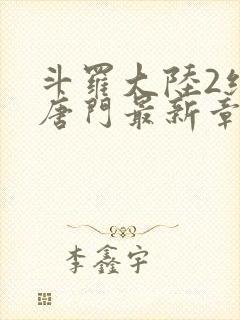 斗羅大陸2
唐門最新章
李鑫宇